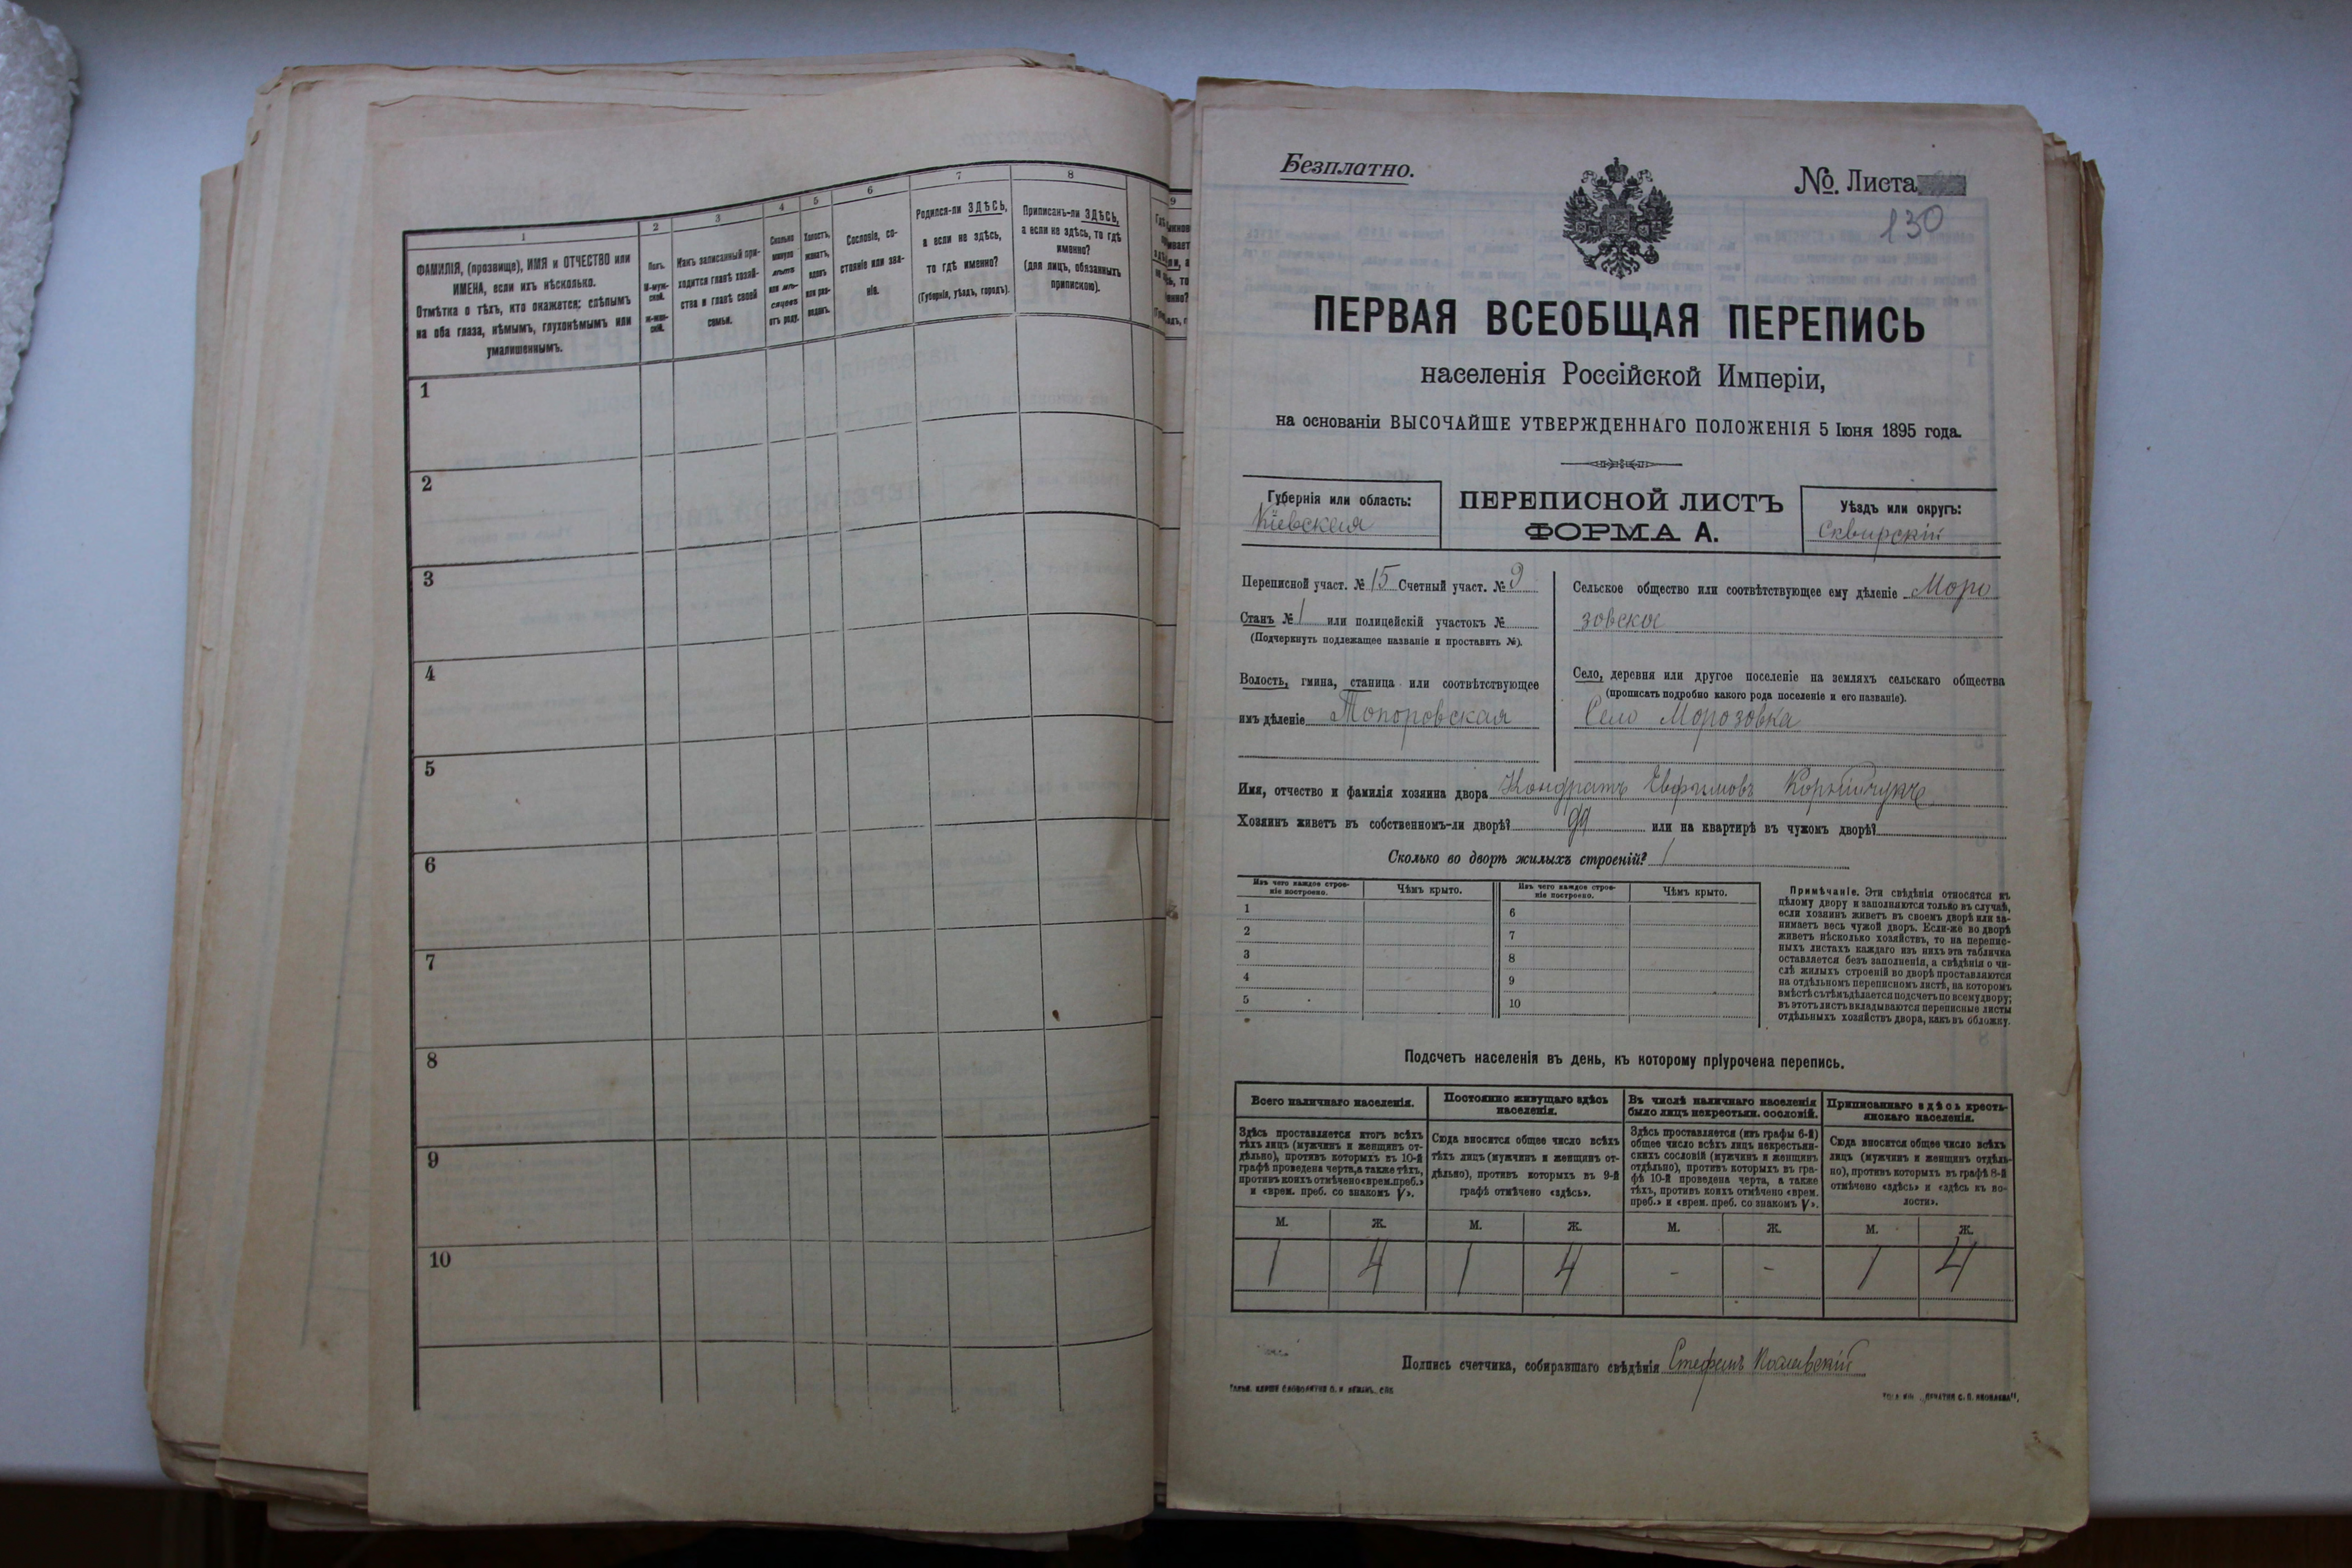 1
2
3
4
5
6
7
8
ФАМИЛІЯ, (прозвище), ИМЯ и ОТЧЕСТВО или
ИМЕНА, если ихъ нѣсколько.
Отмѣтка о тѣхъ, кто окажется: слѣпымъ
на оба глаза, нѣмымъ, глухонѣмымъ или
умалишеннымъ.
Полъ.
М-муж-
ской.
Ж-жен-
скій.
Какъ записанный при-
ходится главѣ хозяй-
ства и главѣ своей
семьи.
Сколько
минуло
лѣтъ
или мѣ-
сяцевъ
отъ роду.
Холостъ,
женатъ,
вдовъ
или раз-
веденъ.
Сословіе, со-
стояніе или зва-
ніе.
Родился-ли ЗДѢСЬ,
а если не здѣсь,
то гдѣ именно?
(Губернія, уѣздъ, городъ).
Приписанъ-ли ЗДѢСЬ,
а если не здѣсь, то гдѣ
именно?
(для лицъ, обязанныхъ
припискою).
1
2
3
4
5
6
7
8
9
10
9
Безплатно.
№. Листа
130
ПЕРВАЯ ВСЕОБЩАЯ ПЕРЕПИСЬ
населенія Россійской Имперіи,
на основаніи ВЫСОЧАЙШЕ УТВЕРЖДЕННАГО ПОЛОЖЕНІЯ 5 Іюня 1895 года.
Губернія или область:
Кіевская
ПЕРЕПИСНОЙ ЛИСТЪ
ФОРМА А.
Уѣздъ или округъ:
Сквирскій
Переписной участ. № 15 Счетный участ. № 9
Станъ № 1 или полицейскій участокъ №
(Подчеркнуть подлежащее названіе и проставить №).
Волость, гмина, станица или соотвѣтствующее
имъ дѣленіе Топоровская
Сельское общество или соотвѣтствующее ему дѣленіе Моро
зовское
Село, деревня или другое поселеніе на земляхъ сельскаго общества
(прописать подробно какого рода поселеніе и его названіе).
Село Морозовка
Имя, отчество и фамилія хозяина двора Кондратъ Евфимовъ
Хозяинъ живетъ въ собственномъ-ли дворѣ? да или на квартирѣ въ чужомъ дворѣ?
Сколько во дворѣ жилыхъ строеній? 1
Изъ чего каждое строе-
ніе построено.
Чѣмъ крыто.
Изъ чего каждое строе-
ніе построено.
Чѣмъ крыто.
1
2
3
4
5
6
7
8
9
10
Примѣчаніе. Эти свѣдѣнія относятся къ
цѣлому двору и заполняются только въ случаѣ,
если хозяинъ живетъ въ своемъ дворѣ или за-
нимаетъ весь чужой дворъ. Если-же во дворѣ
живетъ нѣсколько хозяйствъ, то на перепис-
ныхъ листахъ каждаго изъ нихъ эта табличка
оставляется безъ заполненія, а свѣдѣнія о чи-
слѣ жилыхъ строеній во дворѣ проставляются
на отдѣльномъ переписномъ листѣ, на которомъ
вмѣстѣ съ тѣмъ дѣлается подсчетъ по всему двору;
въ этотъ листъ вкладываются переписные листы
отдѣльныхъ хозяйствъ двора, какъ въ обложку.
Подсчетъ населенія въ день, къ которому пріурочена перепись.
Всего наличнаго населенія.
Здѣсь проставляется итогъ всѣхъ
тѣхъ лицъ (мужчинъ и женщинъ от-
дѣльно), противъ которыхъ въ 10-й
графѣ проведена черта, а также тѣхъ,
противъ коихъ отмѣчено «врем. преб.»
и «врем. преб. со знакомъ V».
Постоянно живущаго здѣсь
населенія.
Сюда вносится общее число всѣхъ
тѣхъ лицъ (мужчинъ и женщинъ от-
дѣльно), противъ которыхъ въ 9-й
графѣ отмѣчено «здѣсь».
Въ числѣ наличнаго населенія
было лицъ некрестьян. сословій.
Здѣсь проставляется (изъ графы 6-й)
общее число всѣхъ лицъ некрестьян-
скихъ сословій (мужчинъ и женщинъ
отдѣльно), противъ которыхъ въ гра-
фѣ 10-й проведена черта, а также
тѣхъ, противъ коихъ отмѣчено «врем.
преб.» и «врем. преб. со знакомъ V».
Приписаннаго здѣсь кресть-
янскаго населенія.
Сюда вносится общее число всѣхъ
лицъ (мужчинъ и женщинъ отдѣль-
но), противъ которыхъ въ графѣ 8-й
отмѣчено «здѣсь» и «здѣсь къ во-
лости».
М. Ж. М. Ж. М. Ж. М. Ж.
1 4 1 4 - - 1 4
Подпись счетчика, собиравшаго свѣдѣнія Стефанъ